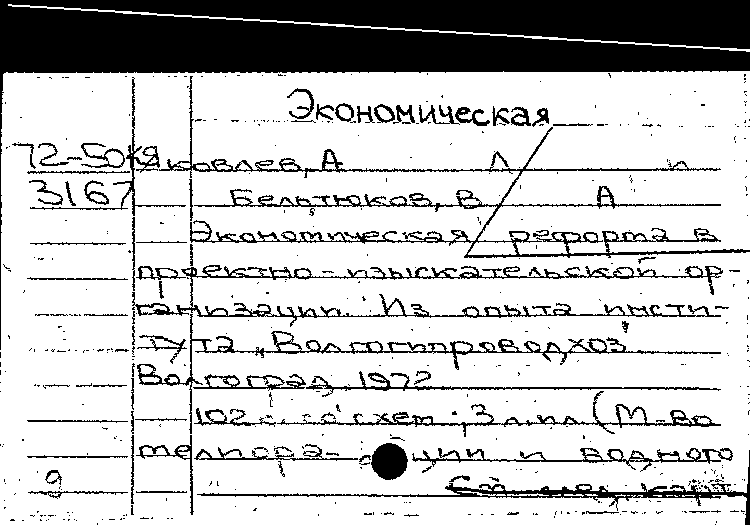 Экономическая
72-50к Яковлев, А Л и
3167 Бельтюков, В А
Экономическая реформа в
проектно-изыскательской ор-
ганизации. Из опыта инсти-
тута „Волгогипроводхоз"
Волгоград 1972
102 с. со схем.; 3 л. ил. (М-во
мелиора- ции и водного
9 См. след. карт